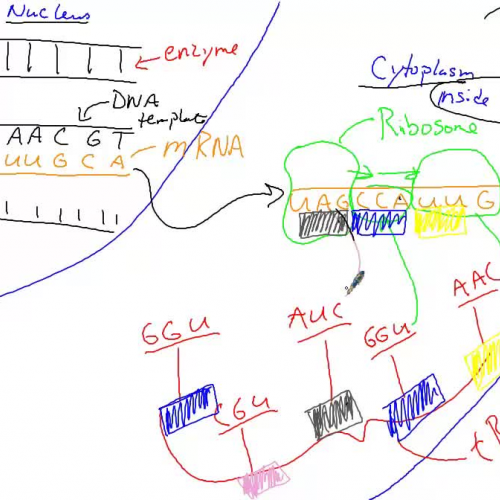 Nucleus
enzyme
DNA
template
AACGT
UUGCA
mRNA
Cytoplasm
inside
Ribosome
UAGCCAUUG
GGU
AUC
GGU
AAC
CGU